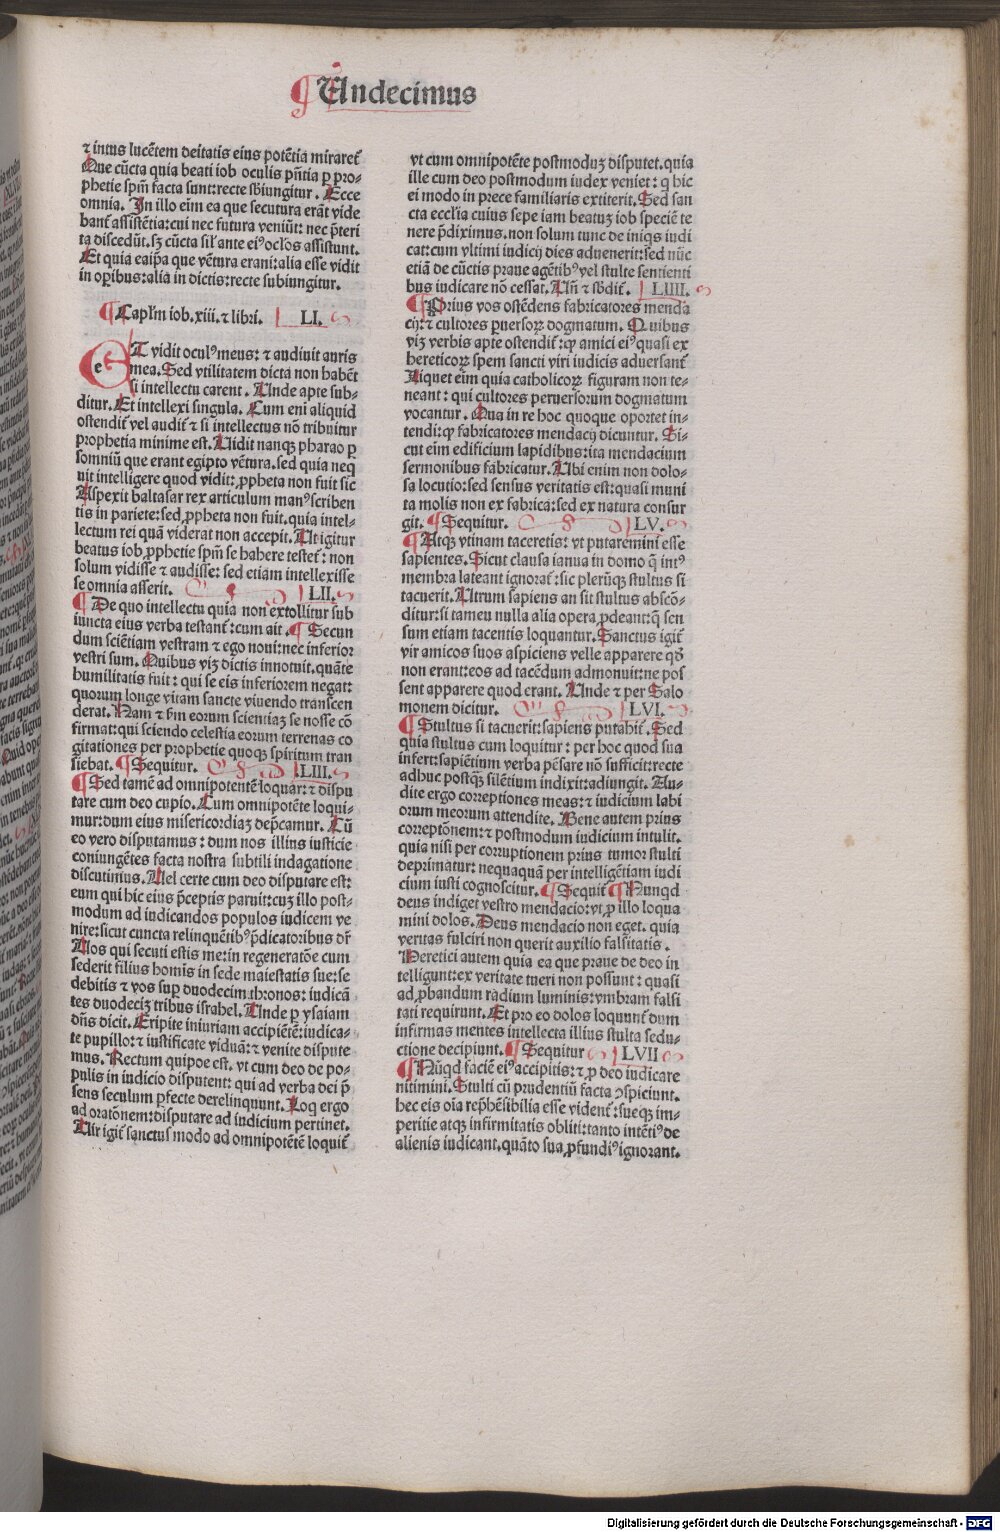 ¶ Undecimus
⁊ intus lucētem deitatis eius potētia miraret̄
Que cūcta quia beati iob oculis pn̄tia ꝑ pro-
phetie spm̄ facta sunt: recte sb̄iungitur. Ecce
omnia. In illo eīm ea que secutura erāt vide
bant̄ assistētia: cui nec futura veniūt: nec p̄teri
ta discedūt. sꝫ cūcta sil̄ ante eiꝰ ocl̓os assistunt.
Et quia eaip̄a que vētura erani: alia esse vidit
in oꝑibus: alia in dictis: recte subiungitur.
¶ Capl̓m iob. xiii. ⁊ libri. LI.
e T vidit oculꝰ meus: ⁊ audiuit auris
mea. Sed vtilitatem dicta non habēt
si intellectu carent. Unde apte sub-
ditur. Et intellexi singula. Cum eni aliquid
ostendit̄ vel audit̄ ⁊ si intellectus nō tribuitur
prophetia minime est. Uidit nanqꝫ pharao ꝑ
somniū que erant egipto vētura. sed quia neq
uit intelligere quod vidit: ꝓpheta non fuit sic
Aspexit baltasar rex articulum manꝰ scriben
tis in pariete: sed ꝓpheta non fuit. quia intel-
lectum rei quā viderat non accepit. Ut igitur
beatus iob ꝓphetie spm̄ se habere testet̄: non
solum vidisse ⁊ audisse: sed etiam intellexisse
se omnia asserit. LII.
¶ De quo intellectu quia non extollitur sub
iuncta eius verba testant̄: cum ait. ¶ Secun
dum sciētiam vestram ⁊ ego noui: nec inferior
vestri sum. Quibus viꝫ dictis innotuit. quāte
humilitatis fuit: qui se eis inferiorem negat:
quorum longe vitam sancte viuendo transcen
derat. Nam ⁊ fm̄ eorum scientiaꝫ se nosse cō
firmat: qui sciendo celestia eorum terrenas co
gitationes per prophetie quoqꝫ spiritum tran
siebat. ¶ Sequitur. LIII.
¶ Sed tamē ad omnipotentē loquar: ⁊ dispu
tare cum deo cupio. Cum omnipotēte loqui-
mur: dum eius misericordiaꝫ dep̄camur. Cū
eo vero disputamus: dum nos illius iusticie
coniungētes facta nostra subtili indagatione
discutimus. Uel certe cum deo disputare est:
eum qui hic eius p̄ceptis paruit: cuꝫ illo post-
modum ad iudicandos populos iudicem ve
nire: sicut cuncta relinquētibꝰ p̄dicatoribus dr̄
Uos qui secuti estis me: in regeneratōe cum
sederit filius homis in sede maiestatis sue: se
debitis ⁊ vos suꝑ duodecim thronos: iudicā
tes duodeciꝫ tribus israhel. Unde ꝑ ysaiam
dn̄s dicit. Eripite iniuriam accipiētē: iudica-
te pupillo: ⁊ iustificate viduā: ⁊ venite dispute
mus. Rectum quipoe est. vt cum deo de po-
pulis in iudicio disputent: qui ad verba dei p̄
sens seculum ꝑfecte derelinquunt. Loq ergo
ad oratōnem: disputare ad iudicium pertinet.
Uir igit̄ sanctus modo ad omnipotētē loquit̄
vt cum omnipotēte postmoduꝫ disputet. quia
ille cum deo postmodum iudex veniet: q hic
ei modo in prece familiaris extiterit. Sed san
cta eccl̓ia cuius sepe iam beatuꝫ iob speciē te
nere p̄diximus. non solum tunc de iniqs iudi
cat: cum vltimi iudicij dies aduenerit: sed nūc
etiā de cūctis praue agētibꝰ vel stulte sentienti
bus iudicare nō cessat. Un̄ ⁊ sb̄dit̄. LIIII.
¶ Prius vos ostēdens fabricatores menda
cij: ⁊ cultores ꝑuersoꝝ dogmatum. Quibus
viꝫ verbis apte ostendit̄: ꝙ amici eiꝰ quasi ex
hereticoꝝ spem sancti viri iudicis aduersant̄
Liquet eīm quia catholicoꝝ figuram non te-
neant: qui cultores peruersorum dogmatum
vocantur. Qua in re hoc quoque oportet in-
tendi: ꝙ fabricatores mendacij dicuntur. Si-
cut eim edificium lapidibus: ita mendacium
sermonibus fabricatur. Ubi enim non dolo-
sa locutio: sed sensus veritatis est: quasi muni
ta molis non ex fabrica: sed ex natura consur
git. ¶ Sequitur. LV.
¶ Atqꝫ vtinam taceretis: vt putaremini esse
sapientes. Sicut clausa ianua in domo q̄ intꝰ
membra lateant ignorat̄: sic plerūqꝫ stultus si
tacuerit. Utrum sapiens an sit stultus abscō-
ditur: si tameu nulla alia opera ꝓdeant: q̄ sen
sum etiam tacentis loquantur. Sanctus igit̄
vir amicos suos aspiciens velle apparere qd̓
non erant: eos ad tacēdum admonuit: ne pos
sent apparere quod erant. Unde ⁊ per Salo
monem dicitur. LVI.
¶ Stultus si tacuerit: sapiens putabit̄. Sed
quia stultus cum loquitur: per hoc quod sua
infert: sapiētium verba pēsare nō sufficit: recte
adhuc postqꝫ silētium indixit: adiungit. Au-
dite ergo correptiones meas: ⁊ iudicium labi
orum meorum attendite. Bene autem prius
correptōnem: ⁊ postmodum iudicium intulit.
quia nisi per corruptionem prius tumor stulti
deprimatur: nequaquā per intelligētiam iudi
cium iusti cognoscitur. ¶ Sequit̄ ¶ Nunqd
deus indiget vestro mendacio: vt ꝓ illo loqua
mini dolos. Deus mendacio non eget. quia
veritas fulciri non querit auxilio falsitatis.
Heretici autem quia ea que praue de deo in
telligunt: ex veritate tueri non possunt: quasi
ad ꝓbandum radium luminis: vmbram falsi
tati requirunt. Et pro eo dolos loquunt̄ dum
infirmas mentes intellecta illius stulta sedu-
ctione decipiunt. ¶ Sequitur LVII
¶ Nūqd faciē eiꝰ accipitis: ⁊ ꝓ deo iudicare
nitimini. Stulti cū prudentiū facta ꝯspiciunt.
hec eis oīa rep̄hēsibilia esse vident̄: sueqꝫ im-
peritie atqꝫ infirmitatis obliti: tanto intētiꝰ de
alienis iudicant. quāto sua ꝓfundiꝰ ignorant.
Digitalisierung gefördert durch die Deutsche Forschungsgemeinschaft - DFG